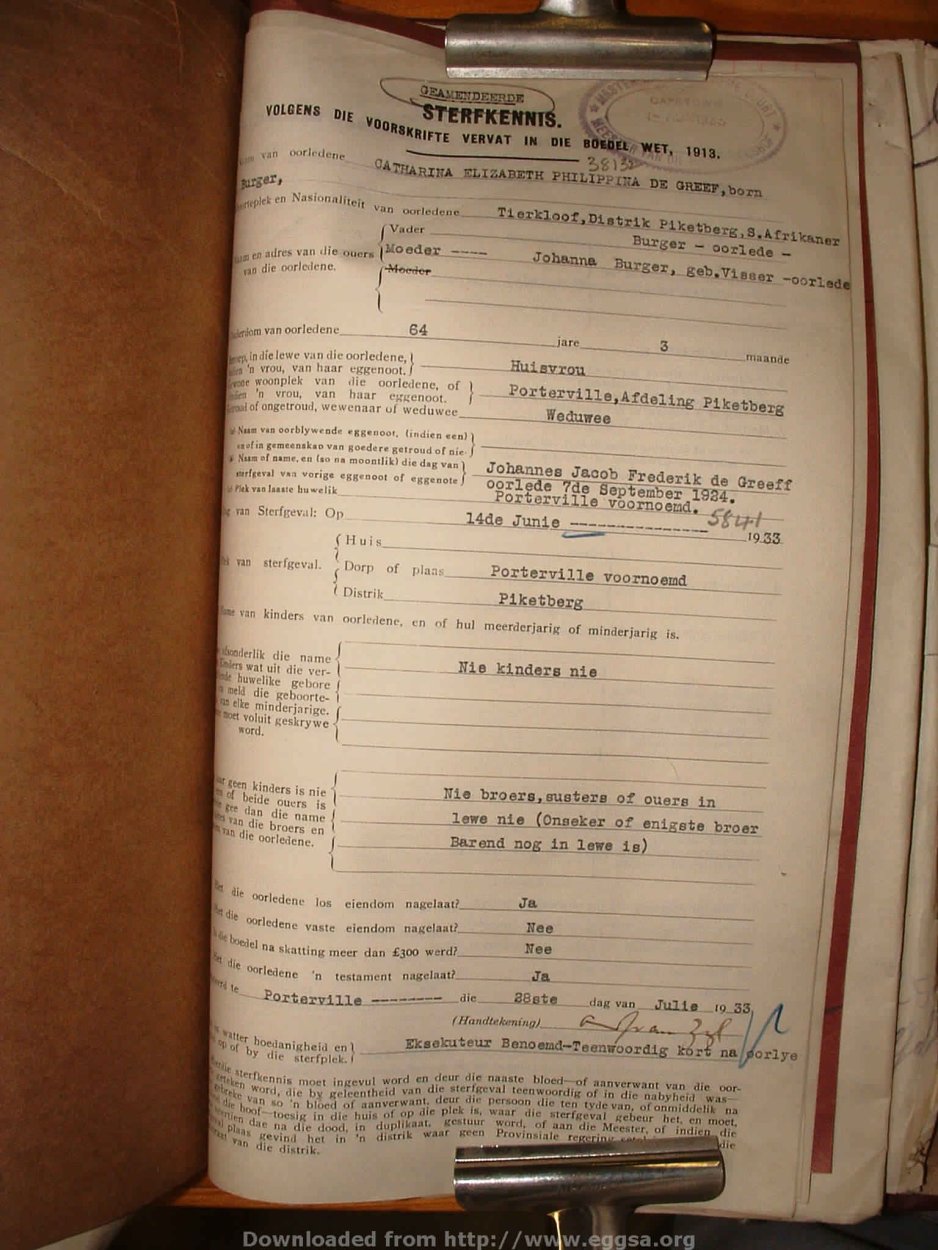 GEAMENDEERDE
STERFKENNIS.
VOLGENS DIE VOORSKRIFTE VERVAT IN DIE BOEDEL WET, 1913.
CAPETOWN
van oorledene CATHARINA ELIZABETH PHILIPPINA DE GREEF, born
Burger,
en Nasionaliteit van oorledene Tierkloof, Distrik Piketberg, S. Afrikaner
Vader Burger - oorlede -
en adres van die ouers Moeder ---- Johanna Burger, geb. Visser -oorlede
van die oorledene. Moeder
van oorledene 64 jare 3 maande
in die lewe van die oorledene,
'n vrou, van haar eggenoot. Huisvrou
woonplek van die oorledene, of
'n vrou, van haar eggenoot. Porterville, Afdeling Piketberg
of ongetroud, wewenaar of weduwee Weduwee
Naam van oorblywende eggenoot, (indien een)
en of in gemeenskap van goedere getroud of nie
Naam of name, en (so na moontlik) die dag van
sterfgeval van vorige eggenoot of eggenote Johannes Jacob Frederik de Greeff
oorlede 7de September 1924.
Plek van laaste huwelik Porterville voornoemd.
5841
van Sterfgeval: Op 14de Junie ---------------- 1933
Huis
van sterfgeval. Dorp of plaas Porterville voornoemd
Distrik Piketberg
van kinders van oorledene, en of hul meerderjarig of minderjarig is.
die name
wat uit die ver-
huwelike gebore
meld die geboorte-
van elke minderjarige.
moet voluit geskrywe
word.
Nie kinders nie
geen kinders is nie
of beide ouers is
gee dan die name
van die broers en
van die oorledene.
Nie broers, susters of ouers in
lewe nie (Onseker of enigste broer
Barend nog in lewe is)
die oorledene los eiendom nagelaat? Ja
die oorledene vaste eiendom nagelaat? Nee
die boedel na skatting meer dan £300 werd? Nee
die oorledene 'n testament nagelaat? Ja
te Porterville -------- die 28ste dag van Julie 1933
(Handtekening)
watter hoedanigheid en
op of by die sterfplek. Eksekuteur Benoemd-Teenwoordig kort na oorlye
sterfkennis moet ingevul word en deur die naaste bloed—of aanverwant van die oor-
word, die by geleentheid van die sterfgeval teenwoordig of in die nabyheid was—
van so 'n bloed of aanverwant, deur die persoon die ten tyde van, of onmiddelik na
die hoof—toesig in die huis of op die plek is, waar die sterfgeval gebeur het, en moet,
dae na die dood, in duplikaat, gestuur word, of aan die Meester, of indien die
plaas gevind het in 'n distrik waar geen Provinsiale regering
die
van die distrik.
Downloaded from http://www.eggsa.org